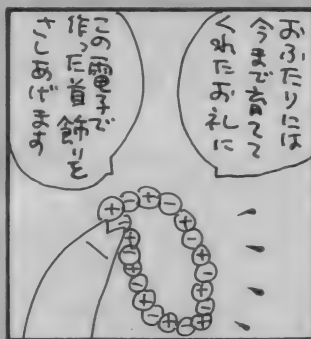 おふたりには
今まで育てて
くれたお礼に
この電子で
作った首飾りを
さしあげます